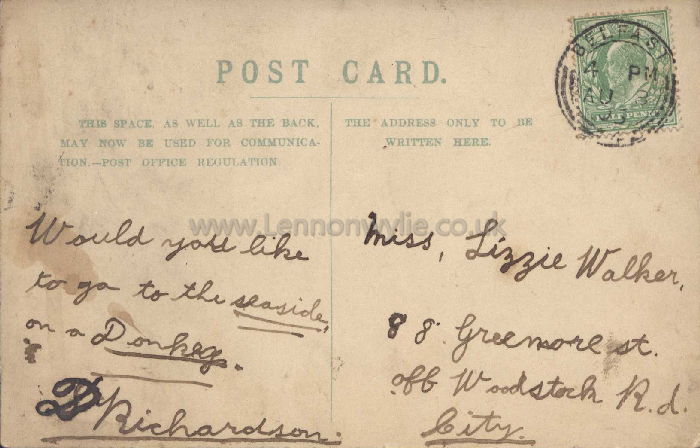 POST CARD.
BELFAST
4 PM
AU 3
THIS SPACE, AS WELL AS THE BACK,
MAY NOW BE USED FOR COMMUNICA-
TION.—POST OFFICE REGULATION.
THE ADDRESS ONLY TO BE
WRITTEN HERE.
www.Lennonwylie.co.uk
Would you like
to go to the seaside,
on a Donkey.
D Richardson.
Miss, Lizzie Walker,
88. Greemore st.
off Woodstock R.d.
City.